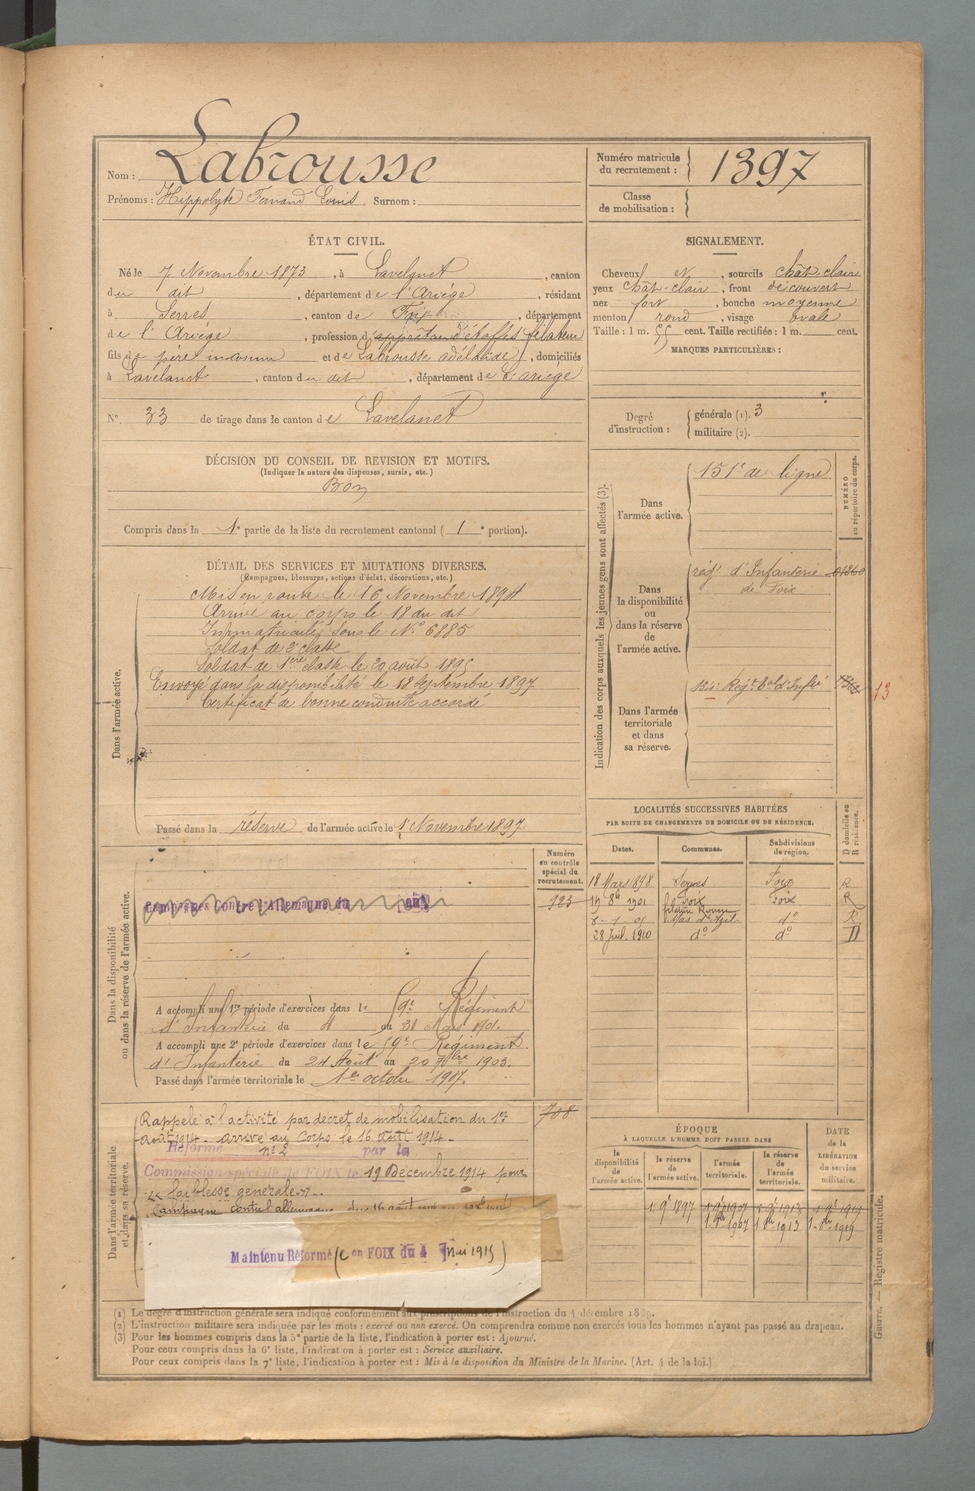 Nom : Labrousse
Prénoms : Hippolyte Fernand Louis Surnom :
Numéro matricule du recrutement : 1397
Classe de mobilisation :
ÉTAT CIVIL.
Né le 7 Novembre 1873, à Lavelanet, canton
du dit, département de l'Ariège, résidant
à Serres, canton de Foix, département
de l'Ariège, profession d'apprêteur d'étoffes fileteur
fils de père inconnu et de Labrousse adélaïde, domiciliés
à Lavelanet, canton du dit, département de l'ariège
N° 33 de tirage dans le canton de Lavelanet
DÉCISION DU CONSEIL DE REVISION ET MOTIFS.
(Indiquer la nature des dispenses, sursis, etc.)
Bon
Compris dans la 1e partie de la liste du recrutement cantonal (1e portion).
DÉTAIL DES SERVICES ET MUTATIONS DIVERSES.
(Campagnes, blessures, actions d'éclat, décorations, etc.)
Dans l'armée active.
Mis en route le 16 Novembre 1894
Arrivé au corps le 18 du dit
Immatriculé sous le N° 6885
Soldat de 2e classe
Soldat de 1ère classe le août 1895
Envoyé dans la disponibilité le 18 Septembre 1897
Certificat de bonne conduite accordé
Passé dans la réserve de l'armée active le 1 Novembre 1897
Dans la disponibilité ou dans la réserve de l'armée active.
Numéro au contrôle spécial du recrutement.
123
Campagnes Contre l'Allemagne du au
A accompli une 1re période d'exercices dans le 59e Régiment
d'Infanterie du 4 au 31 Mars 1901.
A accompli une 2e période d'exercices dans le 59e Régiment
d'Infanterie du 24 Août au 20 7bre 1903.
Passé dans l'armée territoriale le 1er octobre 1907.
Dans l'armée territoriale et dans sa réserve.
708
Rappelé à l'activité par décret de mobilisation du 1er
août 1914 - arrivé au Corps le 16 août 1914 -
Réformé n° 2 par la
Commission spéciale de FOIX le 19 Décembre 1914 pour
"faiblesse générale".
Campagne contre l'allemagne du 16 août
Maintenu Réformé (Con FOIX du 4 Mai 1915)
SIGNALEMENT.
Cheveux N, sourcils chât-clair
yeux chât-clair, front découvert
nez fort, bouche moyenne
menton rond, visage ovale
Taille : 1 m. 55 cent. Taille rectifiée : 1 m. cent.
MARQUES PARTICULIÈRES :
Degré d'instruction : générale (1). 3
militaire (2).
Indication des corps auxquels les jeunes gens sont affectés (3).
NUMÉRO au répertoire du corps.
Dans l'armée active.
151e de ligne
Dans la disponibilité ou dans la réserve de l'armée active.
régt d'Infanterie
de Foix
Dans l'armée territoriale et dans sa réserve.
Régt d'Infie
13
LOCALITÉS SUCCESSIVES HABITÉES
PAR SUITE DE CHANGEMENTS DE DOMICILE OU DE RÉSIDENCE.
Dates. Communes. Subdivisions de région. D domicile ou R résidence.
18 Mars 1898 Serres Foix R
19 8bre 1901 Foix Foix R
Mas d'Azil do R
28 Juil. 1910 do do D
ÉPOQUE
À LAQUELLE L'HOMME DOIT PASSER DANS
la disponibilité de l'armée active. la réserve de l'armée active. l'armée territoriale. la réserve de l'armée territoriale. DATE de la LIBÉRATION du service militaire.
1 9e 1897 1 9e 1907 1 9e 1913 1 9e 1919
1 8bre 1907 1 8bre 1913 1 8bre 1919
(1) Le degré d'instruction générale sera indiqué conformément aux prescriptions de l'instruction du 4 décembre 1889.
(2) L'instruction militaire sera indiquée par les mots : exercé ou non exercé. On comprendra comme non exercés tous les hommes n'ayant pas passé au drapeau.
(3) Pour les hommes compris dans la 5e partie de la liste, l'indication à porter est : Ajourné.
Pour ceux compris dans la 6e liste, l'indication à porter est : Service auxiliaire.
Pour ceux compris dans la 7e liste, l'indication à porter est : Mis à la disposition du Ministre de la Marine. (Art. 4 de la loi.)
Guerre. — Registre matricule.